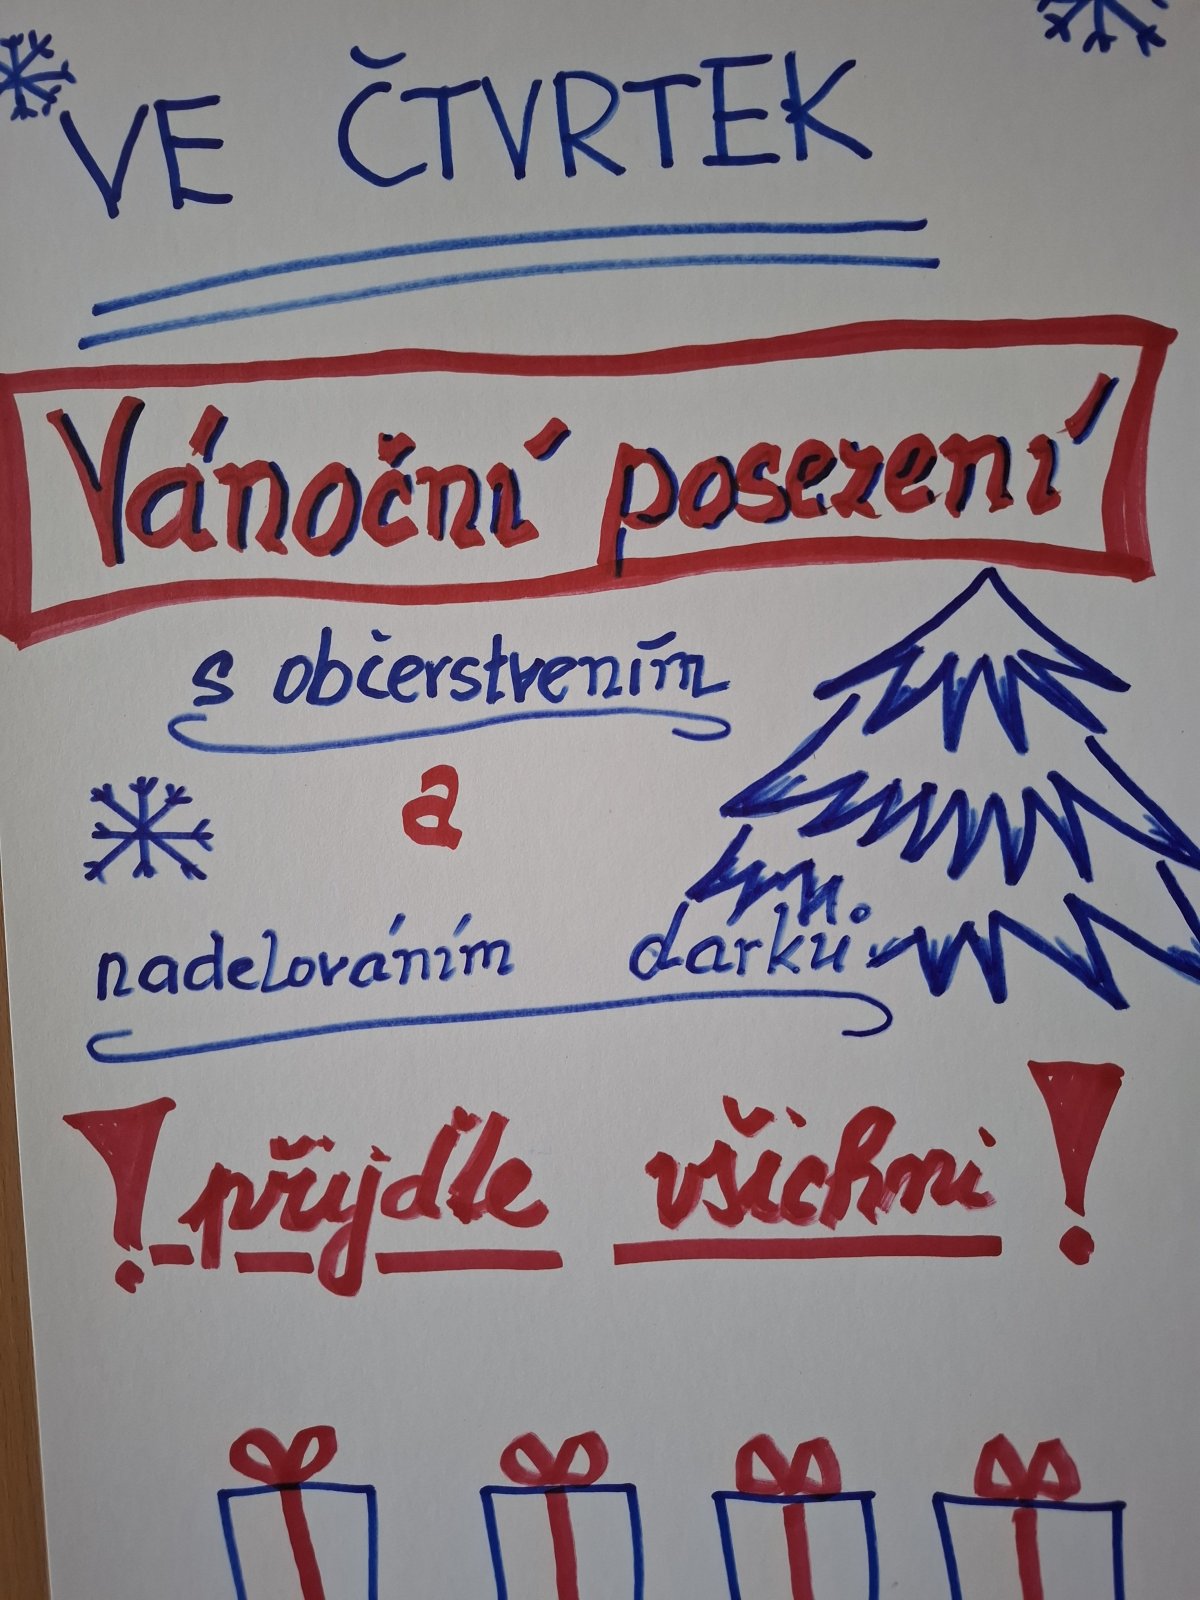 VE ČTVRTEK
Vánoční posezení
s občerstvením
a
nadelováním dárků
! přijďte všichni !